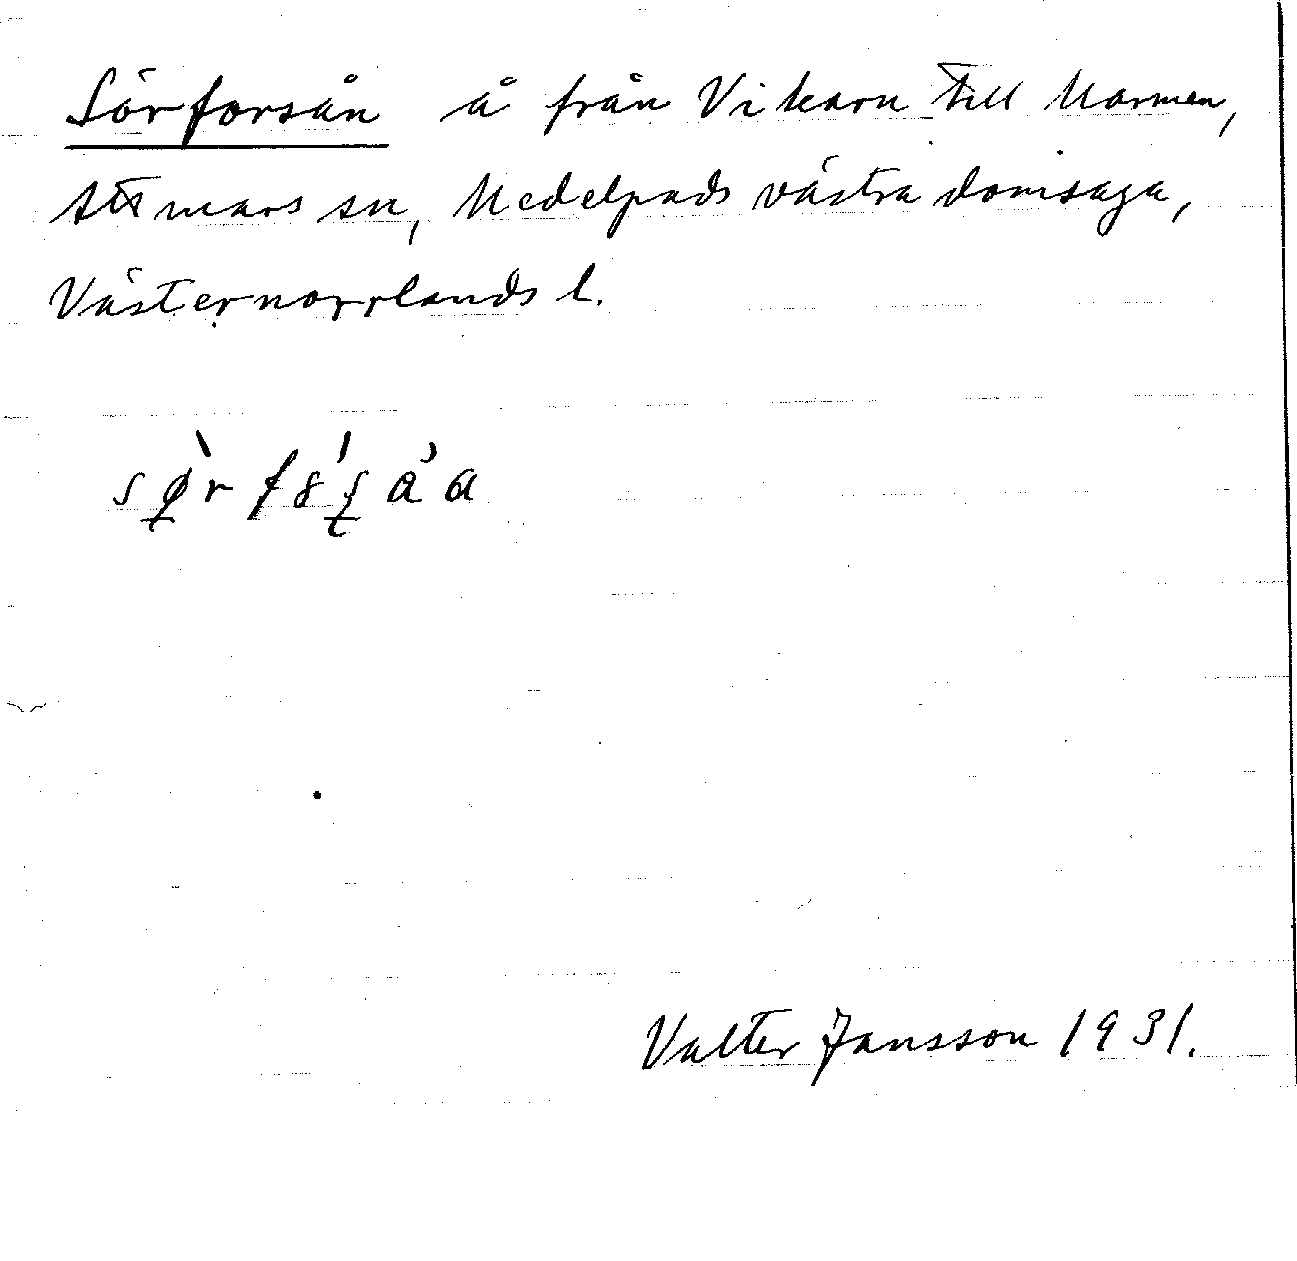 Sörforsån å från Vikarn till Marmen,
Attmars sn, Medelpads västra domsaga,
Västernorrlands l.
Valter Jansson 1931.